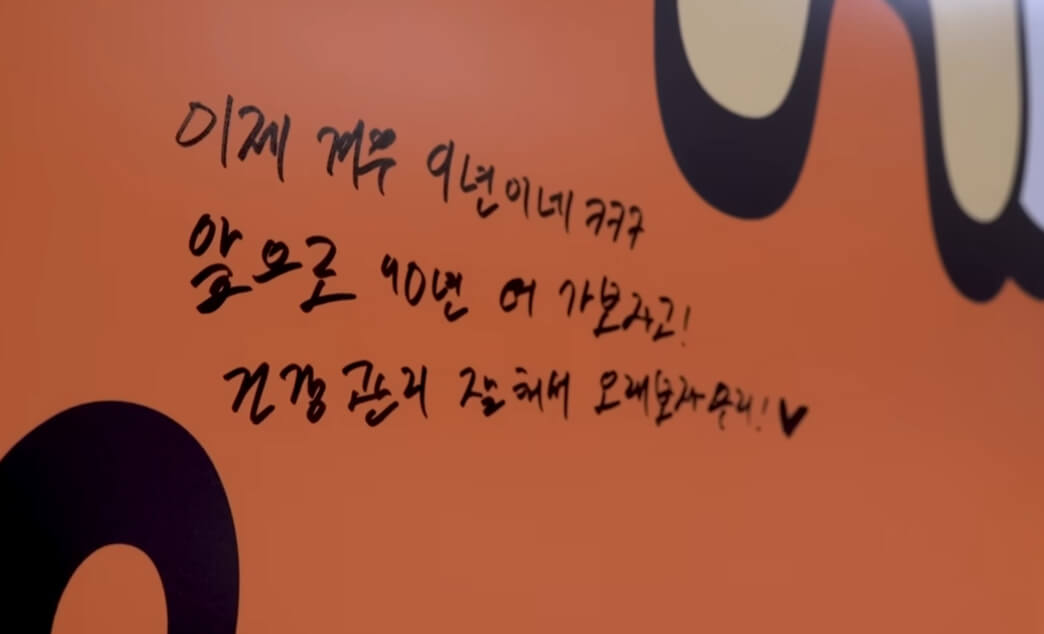 이제 겨우 9년이네 ㅋㅋㅋ
앞으로 90년 더 가보자고!
건강관리 잘해서 오래보자 우리! ♥